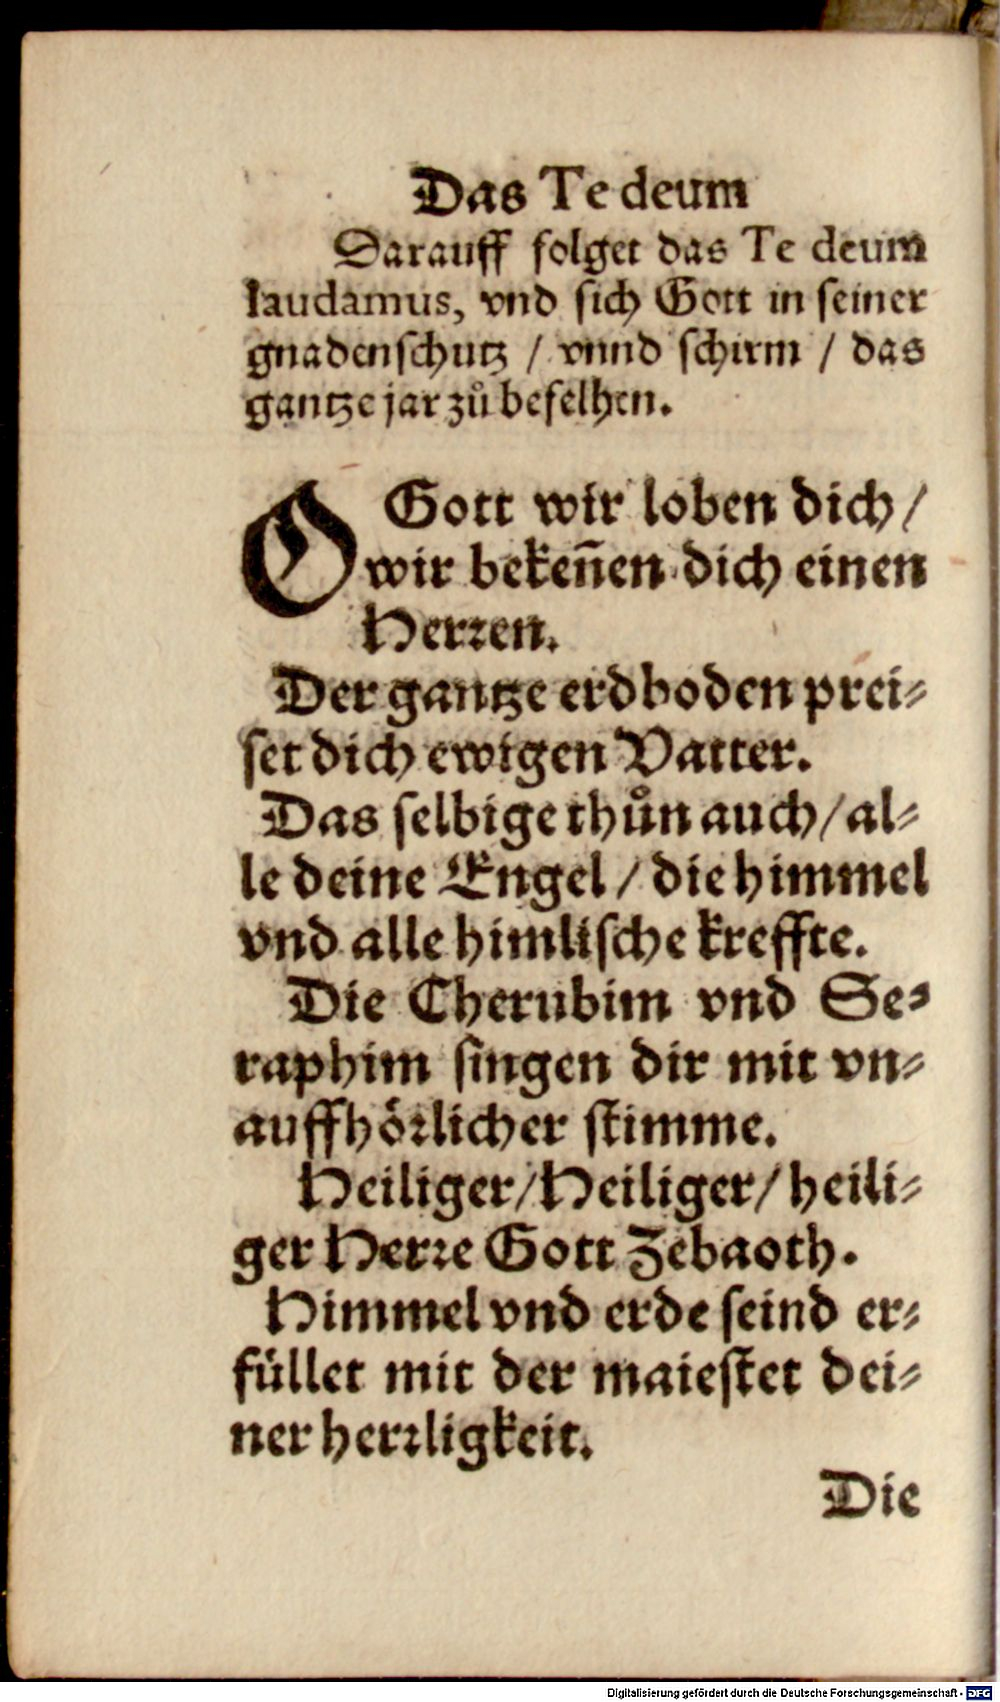 Das Te deum
Darauff folget das Te deum
laudamus, vnd sich Gott in seiner
gnadenschutz / vnnd schirm / das
gantze jar zů befelhen.
O Gott wir loben dich /
wir bekeñen dich einen
Herꝛen.
Der gantze erdboden prei⸗
set dich ewigen Vatter.
Das selbige thůn auch / al⸗
le deine Engel / die himmel
vnd alle himlische kreffte.
Die Cherubim vnd Se⸗
raphim singen dir mit vn⸗
auffhöꝛlicher stimme.
Heiliger / Heiliger / heili⸗
ger Herꝛe Gott Zebaoth.
Himmel vnd erde seind er⸗
füllet mit der maiestet dei⸗
ner herꝛligkeit.
Die
Digitalisierung gefördert durch die Deutsche Forschungsgemeinschaft - DFG